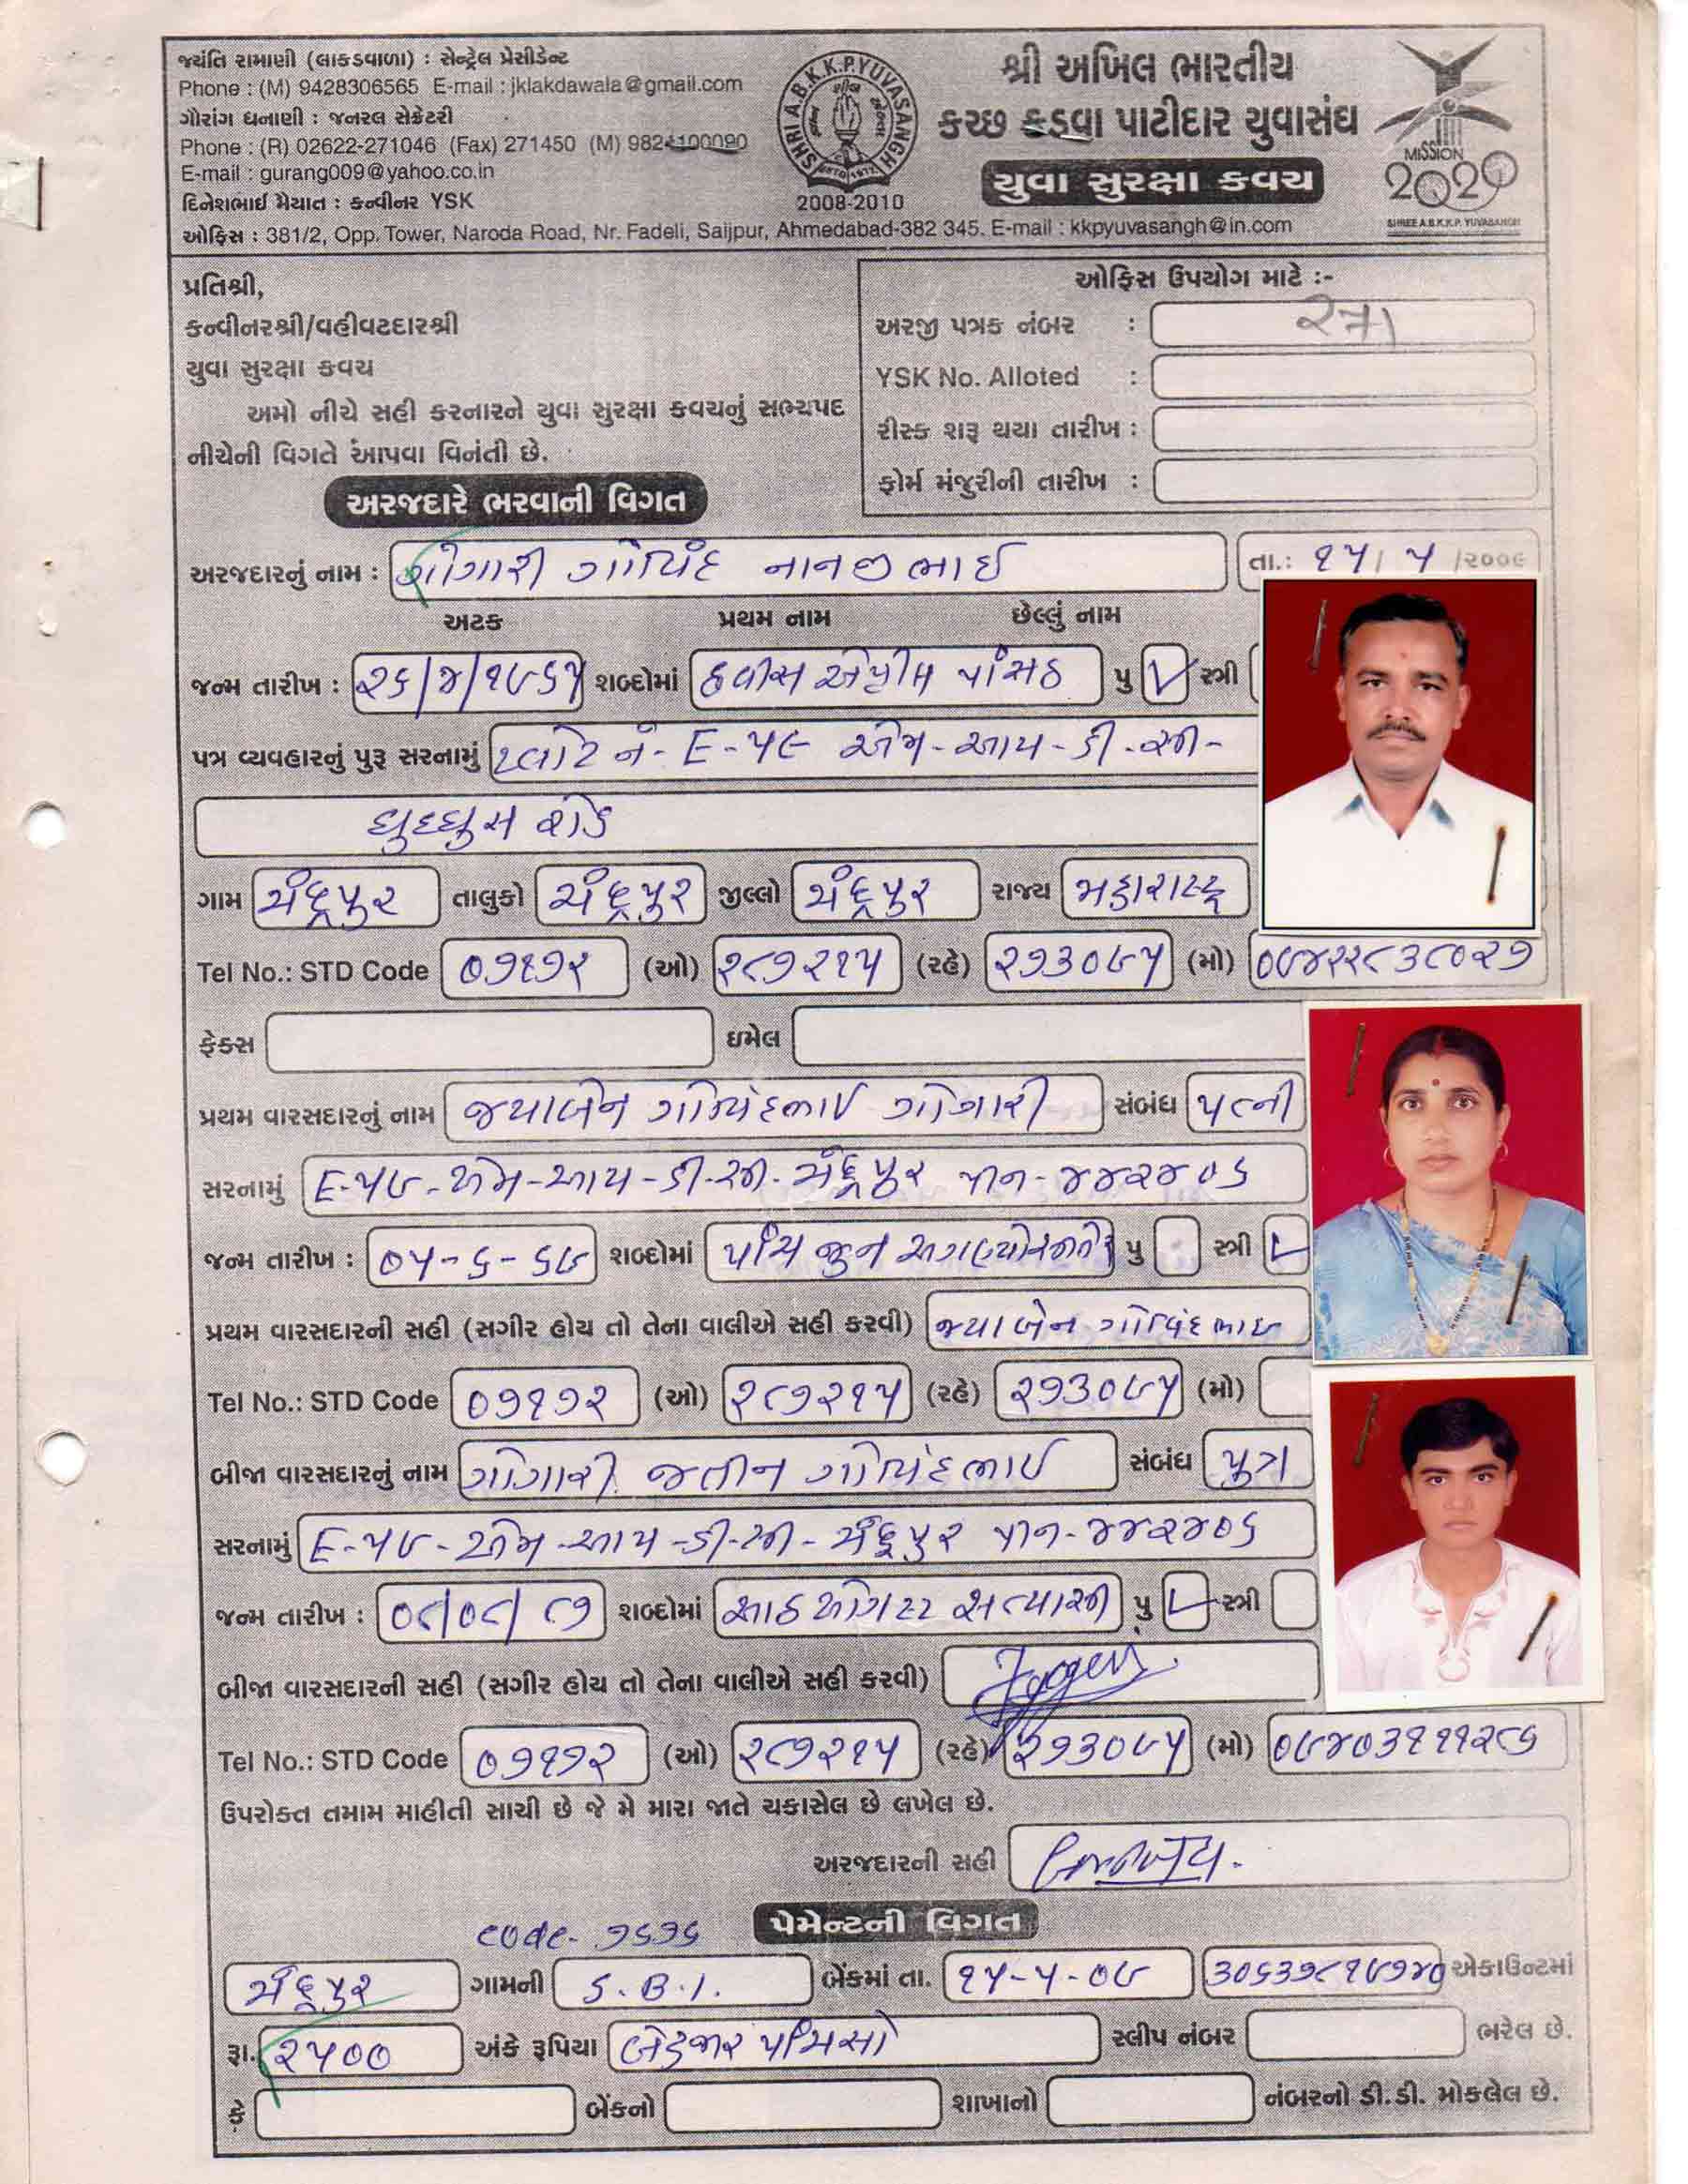 જયંતિ રામાણી (લાકડાવાળા) : સેન્ટ્રેલ પ્રેસીડેન્ટ
Phone : (M) 9428306565 E-mail : jklakdawala@gmail.com
ગૌરાંગ ધનાણી : જનરલ સેક્રેટરી
Phone : (R) 02622-271046 (Fax) 271450 (M) 9824100090
E-mail : gurang009@yahoo.co.in
દિનેશભાઈ મૈયાત : કન્વીનર YSK
SHRI A.B.K.K.P. YUVASANGH
2008-2010
શ્રી અખિલ ભારતીય
કચ્છ કડવા પાટીદાર યુવાસંઘ
યુવા સુરક્ષા કવચ
MISSION
2020
SHREE A.B.K.K.P. YUVASANGH
ઓફિસ : 381/2, Opp. Tower, Naroda Road, Nr. Fadeli, Saijpur, Ahmedabad-382 345. E-mail : kkpyuvasangh@in.com
પ્રતિશ્રી,
કન્વીનરશ્રી/વહીવટદારશ્રી
યુવા સુરક્ષા કવચ
અમો નીચે સહી કરનારને યુવા સુરક્ષા કવચનું સભ્યપદ
નીચેની વિગતે આંપવા વિનંતી છે.
ઓફિસ ઉપયોગ માટે :-
અરજી પત્રક નંબર :
YSK No. Alloted :
રીસ્ક શરૂ થયા તારીખ :
ફોર્મ મંજુરીની તારીખ :
અરજદારે ભરવાની વિગત
અરજદારનું નામ : ગોગારી ગોવિંદ નાનજીભાઈ તા.: ૧૫/ ૫ /૨૦૦૯
અટક પ્રથમ નામ છેલ્લું નામ
જન્મ તારીખ : ૨૬/૪/૧૯૬૫ શબ્દોમાં છવીસ એપ્રીલ પાંસઠ પુ ✓ સ્ત્રી
પત્ર વ્યવહારનું પુરૂ સરનામું પ્લોટ નં- E-૫૯ એમ-આય-ડી-સી-
ઘુઘ્ઘુસ રોડ
ગામ ચંદ્રપુર તાલુકો ચંદ્રપુર જીલ્લો ચંદ્રપુર રાજ્ય મહારાષ્ટ્ર
Tel No.: STD Code ૦૭૧૭૨ (ઓ) ૨૮૭૨૧૫ (રહે) ૨૭૩૦૯૫ (મો) ૦૯૪૨૨૮૩૮૦૨૭
ફેક્સ ઇમેલ
પ્રથમ વારસદારનું નામ જયાબેન ગોવિંદભાઈ ગોગારી સંબંધ પત્ની
સરનામું E-૫૯-એમ-આય-ડી-સી-ચંદ્રપુર પીન-૪૪૨૪૦૬
જન્મ તારીખ : ૦૫-૬-૬૯ શબ્દોમાં પાંચ જુન પુ સ્ત્રી ✓
પ્રથમ વારસદારની સહી (સગીર હોય તો તેના વાલીએ સહી કરવી) જયાબેન ગોવિંદભાઈ
Tel No.: STD Code ૦૭૧૭૨ (ઓ) ૨૮૭૨૧૫ (રહે) ૨૭૩૦૯૫ (મો)
બીજા વારસદારનું નામ ગોગારી જતીન ગોવિંદભાઈ સંબંધ પુત્ર
સરનામું E-૫૯-એમ-આય-ડી-સી-ચંદ્રપુર પીન-૪૪૨૪૦૬
જન્મ તારીખ : ૦૮/૦૮/૮૭ શબ્દોમાં આઠ ઓગષ્ટ સત્યાસી પુ ✓ સ્ત્રી
બીજા વારસદારની સહી (સગીર હોય તો તેના વાલીએ સહી કરવી)
Tel No.: STD Code ૦૭૧૭૨ (ઓ) ૨૮૭૨૧૫ (રહે) ૨૭૩૦૯૫ (મો) ૦૯૪૦૩૧૧૧૨૮૬
ઉપરોક્ત તમામ માહીતી સાચી છે જે મે મારા જાતે ચકાસેલ છે લખેલ છે.
અરજદારની સહી
પેમેન્ટની વિગત
code- ૭૬૭૬
ચંદ્રપુર ગામની S.B.I. બેંકમાં તા. ૧૫-૫-૦૯ ૩૦૬૩૭૮૧૯૭૪૦ એકાઉન્ટમાં
રૂા. ૨૫૦૦ અંકે રૂપિયા બેહજાર પાંચસો સ્લીપ નંબર ભરેલ છે.
કે બેંકનો શાખાનો નંબરનો ડી.ડી. મોકલેલ છે.